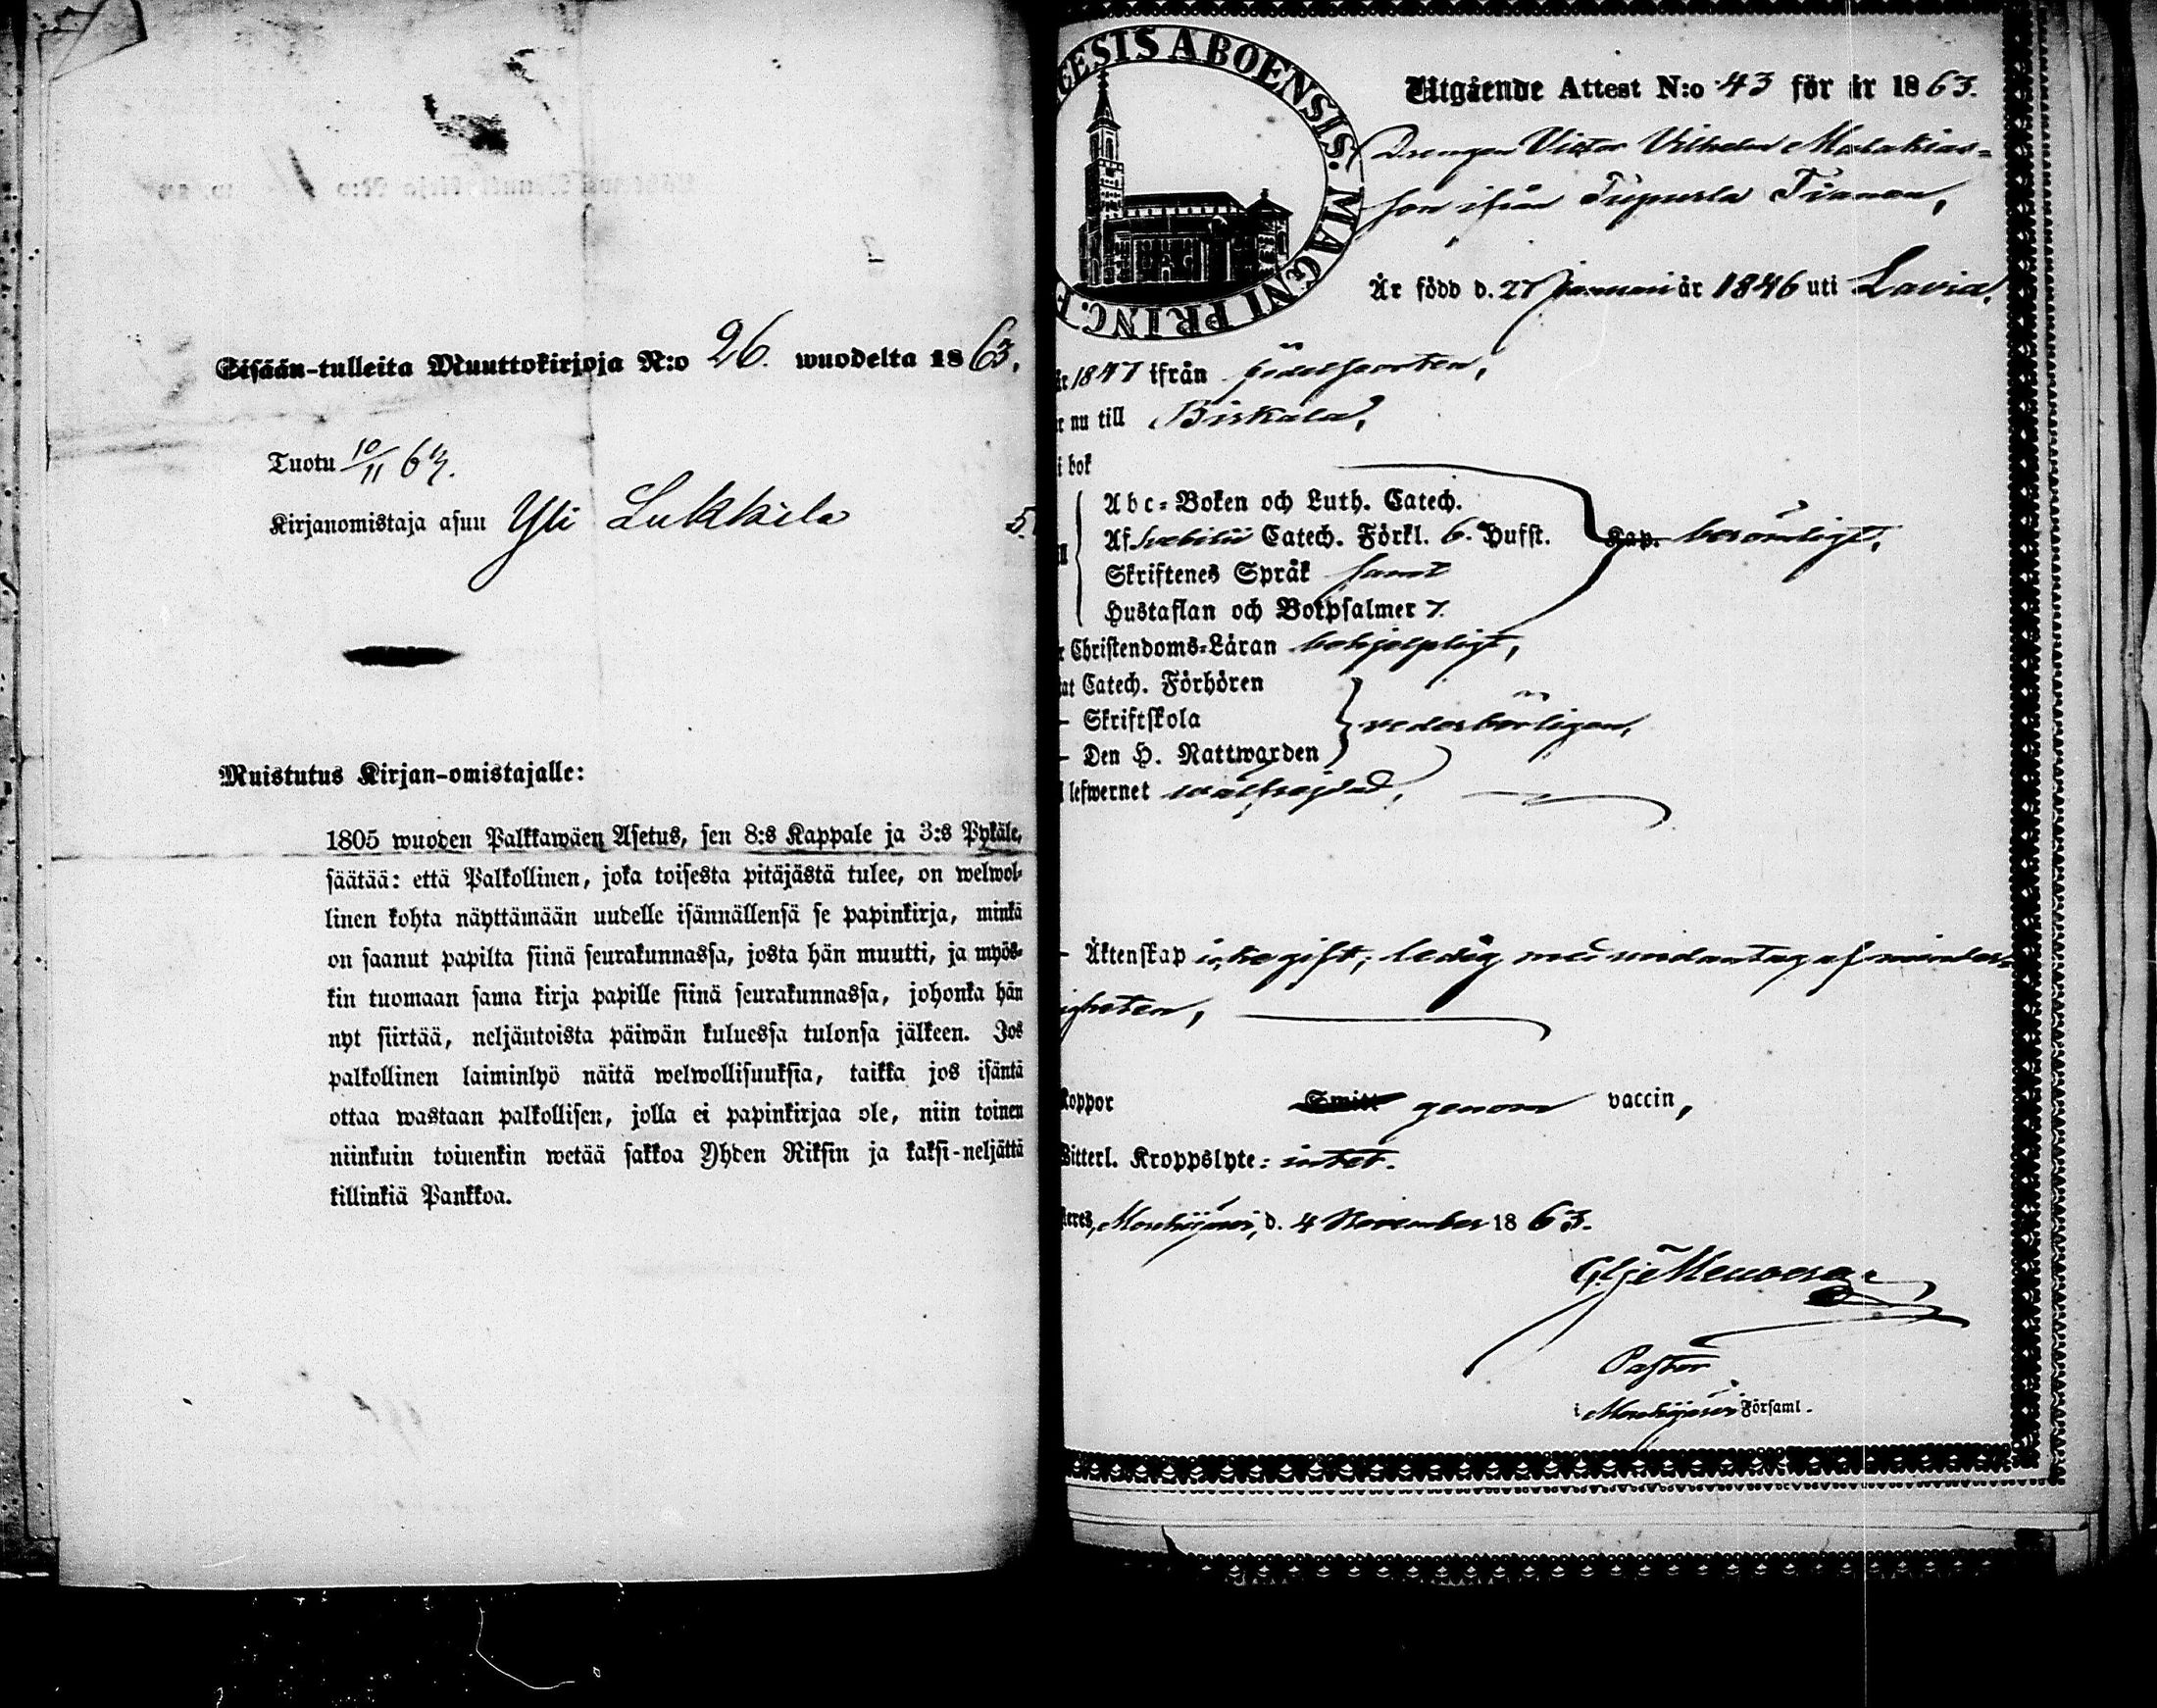 Sisään-tulleita Muuttokirjoja N:o 26. wuodelta 1863.
Tuotu 10/11 63.
Kirjanomistaja asuu Yli Lukkila
5.
Muistutus Kirjan-omistajalle:
1805 wuoden Palkkawäen Asetus, sen 8:s Kappale ja 3:s Pykäle,
säätää: että Palkollinen, joka toisesta pitäjästä tulee, on welwol-
linen kohta näyttämään uudelle isännällensä se papinkirja, minkä
on saanut papilta siinä seurakunnassa, josta hän muutti, ja myös-
kin tuomaan sama kirja papille siinä seurakunnassa, johonka hän
nyt siirtää, neljäntoista päiwän kuluessa tulonsa jälkeen. Jos
palkollinen laiminlyö näitä welwollisuuksia, taikka jos isäntä
ottaa wastaan palkollisen, jolla ei papinkirjaa ole, niin toinen
niinkuin toinenkin wetää sakkoa Yhden Riksin ja kaksi-neljättä
killinkiä Pankkoa.
CESIS ABOENSIS. MAGNI PRINC. F
Utgående Attest N:o 43 för år 1863.
Drengen Victor Vilhelm Malakias-
son ifrån Tupurla
Är född d. 27 januari år 1846 uti Lavia,
år 1847 ifrån födelseorten,
r nu till Birkala,
i bok
Abc-Boken och Luth. Catech.
Af Svebilii Catech. Förkl. 6. Hufst. Kap. berömligt,
Skriftenes Språk samt
Hustaflan och Botpsalmer 7.
r Christendoms-Läran behjelpligt,
at Catech. Förhören
- Skriftskola vederbörligen,
- Den H. Nattwarden
l lefwernet välfrejdad,
- Äktenskap icke gift, ledig med undantag af minder-
igheten,
koppor Smitt genom vaccin,
Witterl. Kroppslyte: intet.
teres, Mouhijärvi, d. 4 November 1863.
Pastor
i Mouhijärvi Församl.